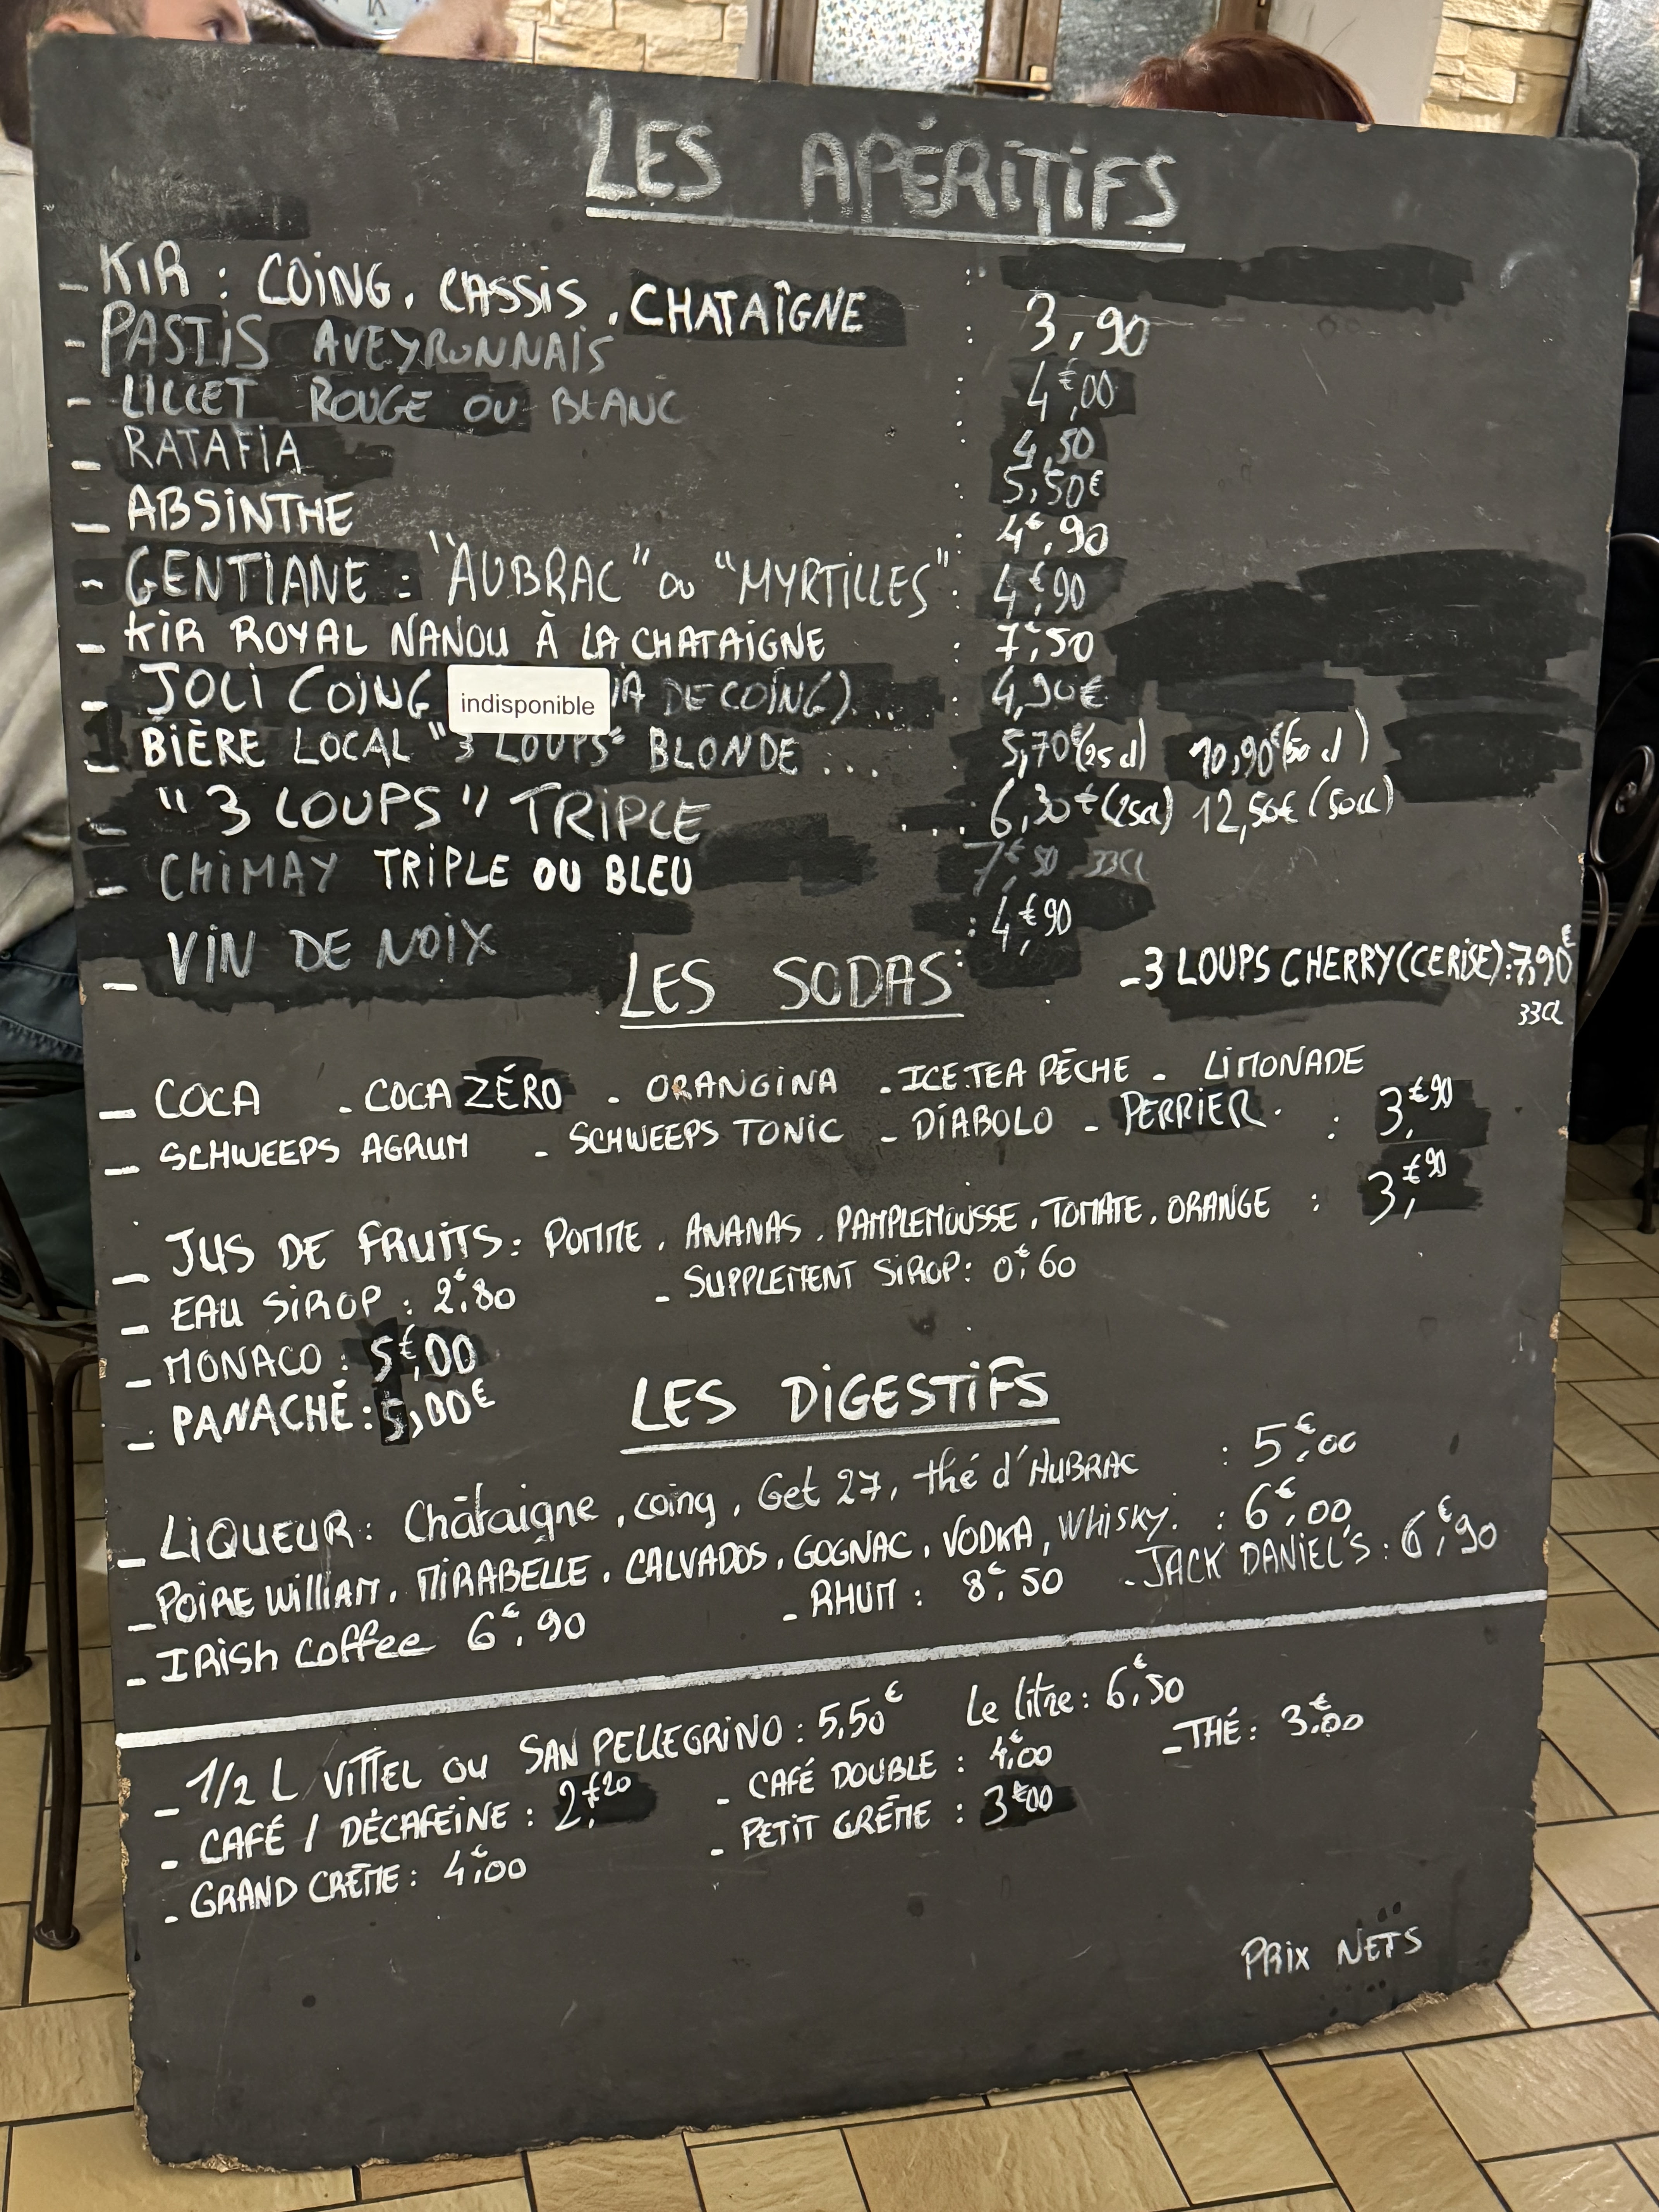 LES APÉRITIFS
- KIR : COING, CASSIS, CHATAÎGNE : 3,90
- PASTIS AVEYRONNAIS : 4€,00
- LILLET ROUGE OU BLANC : 4,50
- RATAFIA : 5,50€
- ABSINTHE : 4€,90
- GENTIANE : "AUBRAC" OU "MYRTILLES" : 4€,90
- KIR ROYAL NANOU À LA CHATAIGNE : 7€,50
- JOLI COING indisponible DE COING)... : 4,90€
- BIÈRE LOCAL "3 LOUPS" BLONDE ... 5,70€(25cl) 10,90€(50cl)
- "3 LOUPS" TRIPLE .... 6,30€(25cl) 12,50€(50cl)
- CHIMAY TRIPLE OU BLEU 7€,50 33Cl
- VIN DE NOIX : 4,€90
LES SODAS
- 3 LOUPS CHERRY (CERISE) : 7,90€
33Cl
- COCA - COCA ZÉRO - ORANGINA - ICE.TEA PÊCHE - LIMONADE
- SCHWEEPS AGRUM - SCHWEEPS TONIC - DIABOLO - PERRIER : 3,€90
- JUS DE FRUITS : POMME, ANANAS, PAMPLEMOUSSE, TOMATE, ORANGE : 3,€90
- EAU SIROP : 2€,80 - SUPPLEMENT SIROP : 0€,60
- MONACO : 5€,00
- PANACHÉ : 5,00€
LES DIGESTIFS
- LIQUEUR : Châtaigne, coing, Get 27, thé d'AUBRAC : 5€,00
- POIRE WILLIAM, MIRABELLE, CALVADOS, GOGNAC, VODKA, WHISKY. : 6€,00
- IRISH COFFEE 6€,90 - RHUM : 8€,50 - JACK DANIEL'S : 6€,90
- 1/2 L VITTEL OU SAN PELLEGRINO : 5,50€ Le litre : 6€,50
- CAFÉ / DÉCAFEINE : 2,€20 - CAFÉ DOUBLE : 4€,00 - THÉ : 3€,00
- GRAND CRÊME : 4€,00 - PETIT CRÊME : 3€00
PRIX NETS